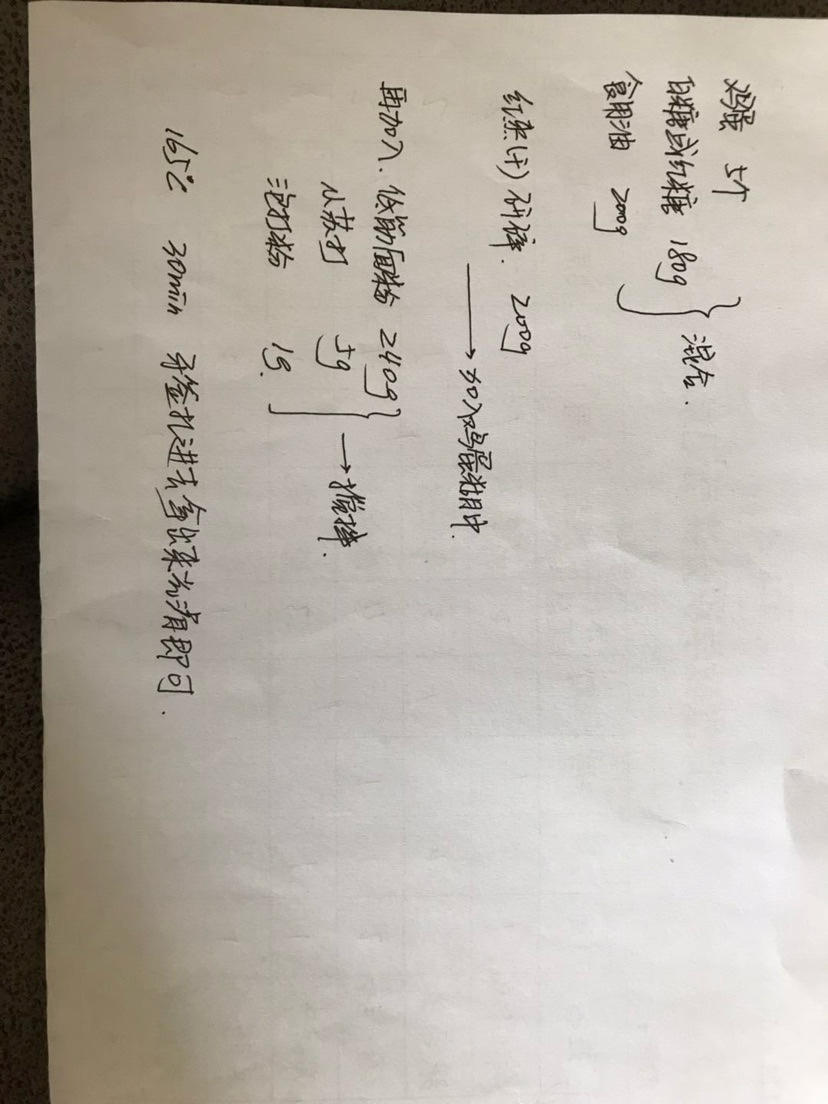 鸡蛋 5个
白糖或红糖 180g
食用油 200g
混合.
红枣(干) 碎. 200g
→ 加入鸡蛋糊中.
再加入. 低筋面粉 240g
小苏打 5g
泡打粉 1g.
→ 搅拌.
165℃ 30min 牙签扎进去拿出来光滑即可.